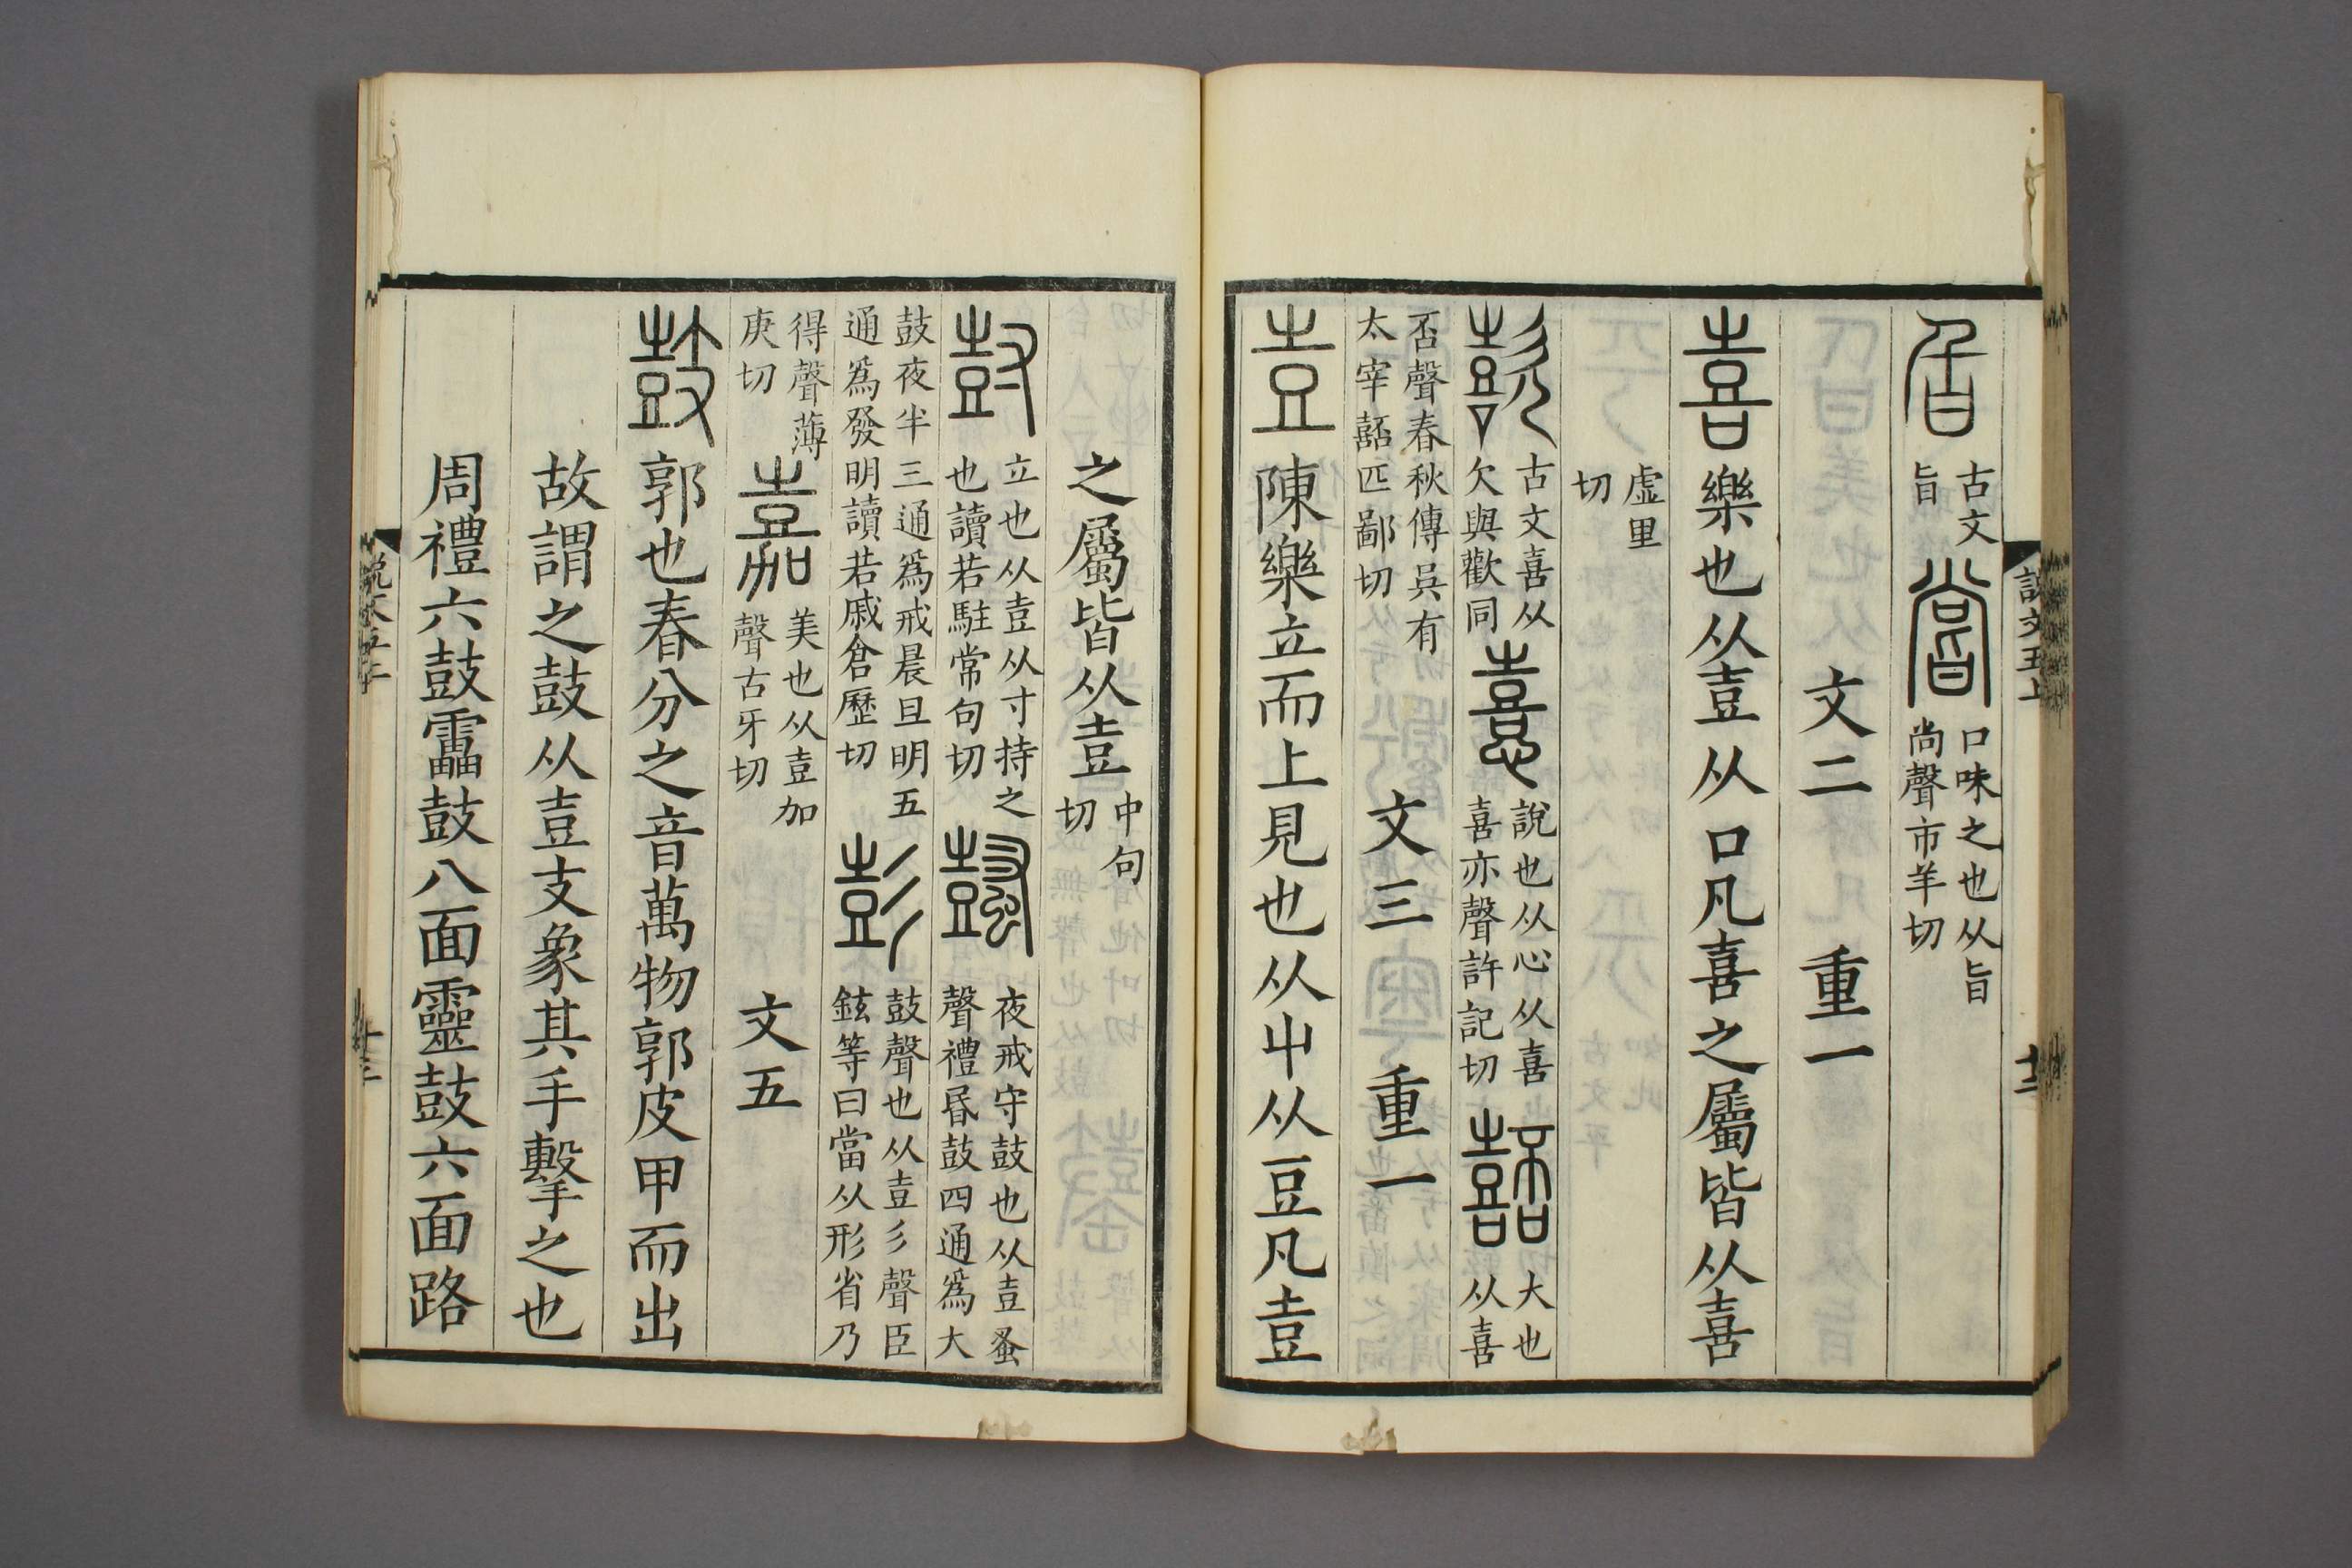 說文五上
十二
𣅌古文旨嘗口味之也从旨尚聲市羊切
文二 重一
喜樂也从壴从口凡喜之屬皆从喜
虛里切
歖古文喜从欠與歡同憙說也从心从喜喜亦聲許記切嚭大也从喜
否聲春秋傳吳有太宰嚭匹鄙切 文三 重一
壴陳樂立而上見也从屮从豆凡壴
之屬皆从壴中句切
尌立也从壴从寸持之也讀若駐常句切鼜夜戒守鼓也从壴蚤聲禮昬鼓四通爲大
鼓夜半三通爲戒晨旦明五通爲發明讀若戚倉歷切彭鼓聲也从壴彡聲臣鉉等曰當从形省乃
得聲薄庚切嘉美也从壴加聲古牙切 文五
鼓郭也春分之音萬物郭皮甲而出
故謂之鼓从壴支象其手擊之也
周禮六鼓靁鼓八面靈鼓六面路